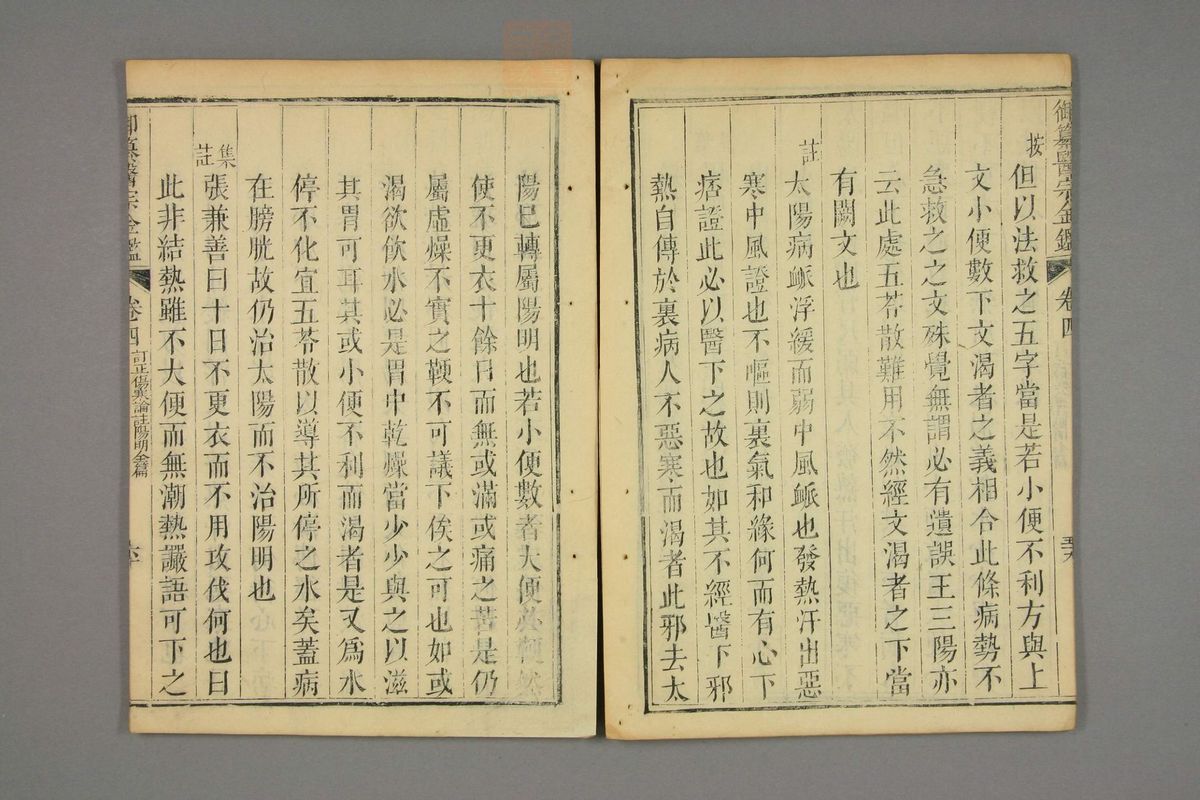 御纂醫宗金鑑 卷四
按 但以法救之五字當是若小便不利方與上
文小便數下文渴者之義相合此條病勢不
急救之之文殊覺無謂必有遺誤王三陽亦
云此處五苓散難用不然經文渴者之下當
有闕文也
註 太陽病脈浮緩而弱中風脈也發熱汗出惡
寒中風證也不嘔則裏氣和緣何而有心下
痞證此必以醫下之故也如其不經醫下邪
熱自傳於裏病人不惡寒而渴者此邪去太
陽已轉屬陽明也若小便數者大便必鞕然
使不更衣十餘日而無或滿或痛之苦是仍
屬虛燥不實之鞕不可議下俟之可也如或
渴欲飲水必是胃中乾燥當少少與之以滋
其胃可耳其或小便不利而渴者是又爲水
停不化宜五苓散以導其所停之水矣蓋病
在膀胱故仍治太陽而不治陽明也
集註 張兼善曰十日不更衣而不用攻伐何也曰
此非結熱雖不大便而無潮熱讝語可下之
御纂醫宗金鑑 卷四 訂正傷寒論註陽明全篇 六十